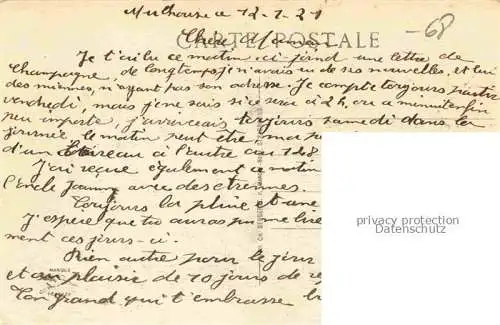 Mulhouse le 12-1-21
-68
CARTE POSTALE
Chère Maman
Je t'ai lu ce matin ci-joint une lettre de
Champagne, de longtemps je n'avais eu de ses nouvelles, et lui
des miennes, n'ayant pas son adresse. Je compte toujours partir
vendredi, mais je ne sais si ce sera à 2h, ou à minuit enfin
peu importe, j'arriverais toujours samedi dans la
journée, le matin peut être, ma
d'un bureau à l'autre au 128
J'ai reçue également ce matin
l'Encle Joanny avec des étrennes.
Toujours la pluie et une
J'espère que tu auras pu me lire
ment ces jours-ci.
Rien autre pour le jour
et son plaisir de 10 jours de
Ton grand qui t'embrasse
privacy protection
watermark